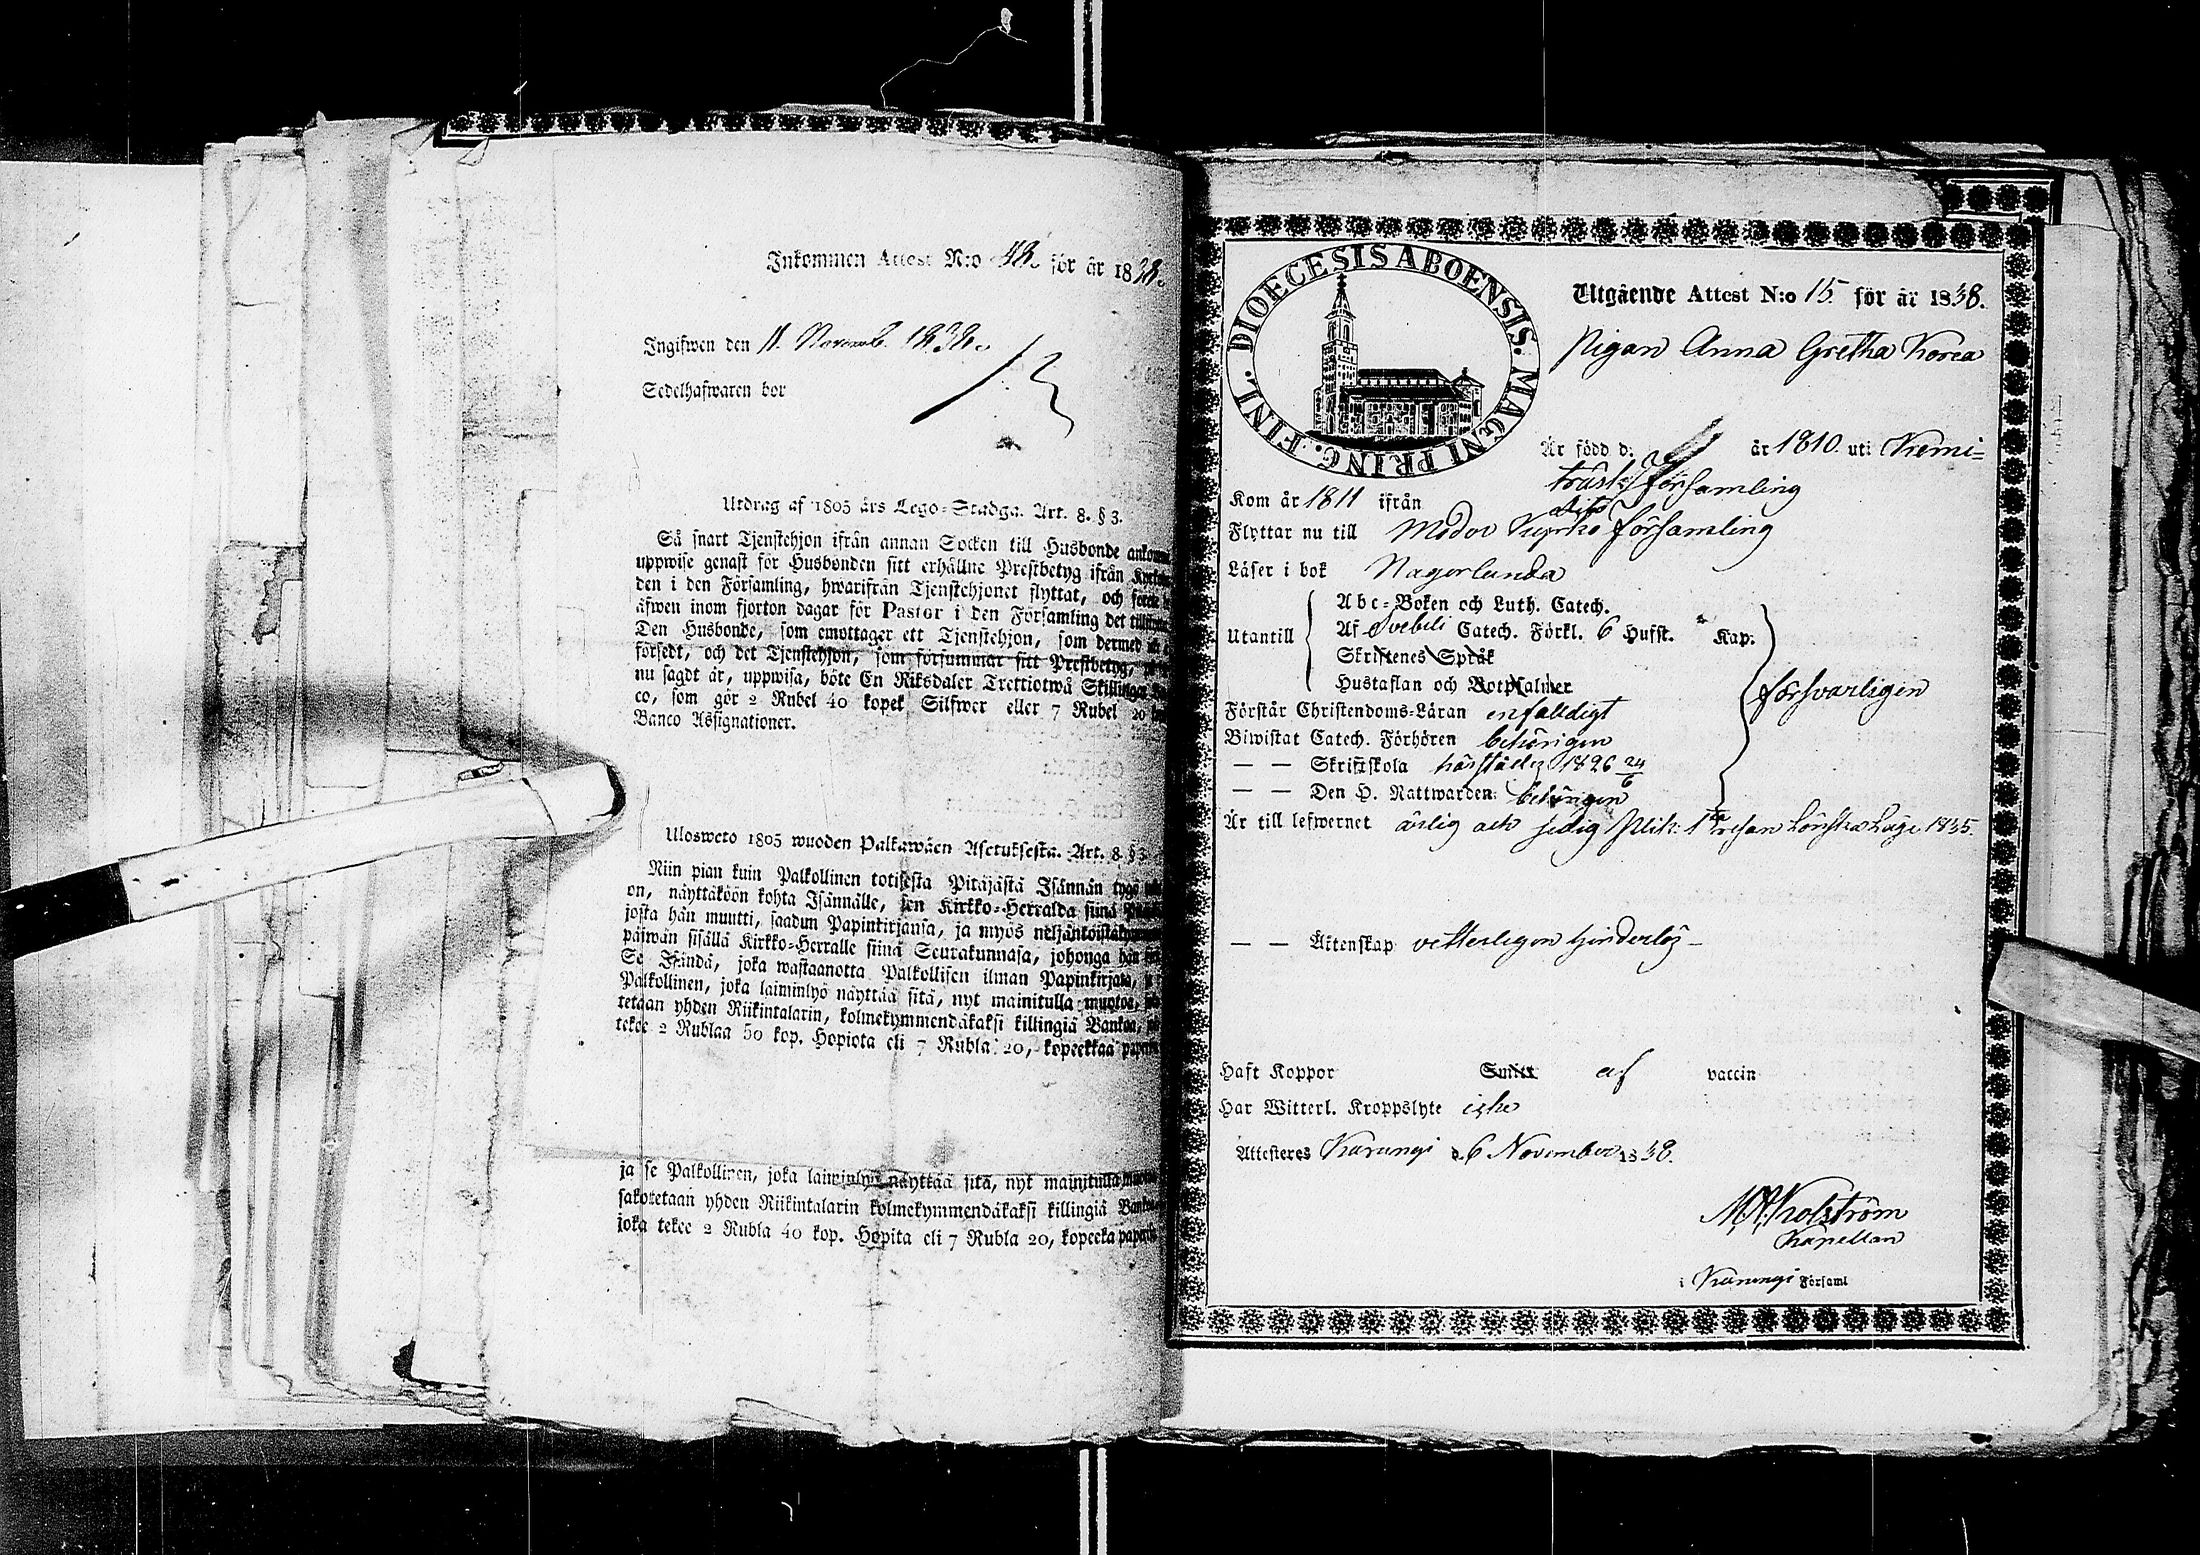 Inkommen Attest N:o 48. för år 1838.
Ingifwen den 11. Novemb. 1838.
Sedelhafwaren bor
Utdrag af 1805 års Lego-Stadga. Art. 8. § 3.
Så snart Tjenstehjon ifrån annan Socken till Husbonde
uppwise genast för Husbonden sitt erhållne Prestbetyg ifrån
den i den Församling, hwarifrån Tjenstehjonet flyttat, och
äfwen inom fjorton dagar för Pastor i den Församling det
Den Husbonde, som emottager ett Tjenstehjon, som dermed
försedt, och det Tjenstehjon, som försummar sitt Prestbetyg,
nu sagdt är, uppwisa, böte En Riksdaler Trettiotwå Skillingar
co, som gör 2 Rubel 40 kopek Silfwer eller 7 Rubel 20
Banco Assignationer.
Ulosweto 1805 wuoden Palkawäen Asetuksesta. Art. 8 § 3
Niin pian kuin Palkollinen totisesta Pitäjästä Isännän tygö
on, näyttäköön kohta Isännälle, sen Kirkko-Herralda siinä
josta hän muutti, saadun Papinkirjansa, ja myös
päiwän sisällä Kirkko-Herralle siinä Seurakunnasa, johonga hän
Se Isändä, joka wastaanotta Palkollisen ilman Papinkirjata,
Palkollinen, joka laiminlyö näyttää sitä, nyt mainitulla muotoa,
tetaan yhden Riikintalarin, kolmekymmendäkaksi killingiä Bankoa,
tekee 2 Rublaa 50 kop. Hopiota eli 7 Rubla 20, kopeekkaa
ja se Palkollinen, joka laiminlyö näyttää sitä, nyt mainitulla
sakotetaan yhden Riikintalarin kolmekymmendäkaksi killingiä
joka tekee 2 Rubla 40 kop. Hopita eli 7 Rubla 20, kopeeka
DIOECESIS ABOENSIS. MAGNI PRINC. FINL.
Utgående Attest N:o 15 för år 1838.
Pigan Anna Gretha Korea
Är född d. år 1810. uti Kemi=
träsk Församling
Kom år 1811 ifrån dito
Flyttar nu till Församling
Läser i bok Någorlunda
Abc-Boken och Luth. Catech.
Utantill Af Svebeli Catech. Förkl. 6 Hufst. Kap.
Skriftenes Språk
Hustaflan och Botpsalmer
försvarligen
Förstår Christendoms-Läran enfalldigt
Biwistat Catech. Förhören behörigen
— — Skriftskola härstädes 1826 24/6
— — Den H. Nattwarden behörigen
Är till lefwernet ärlig och resan Lönska Läge 1835.
— — Äktenskap vetterligen hinderlös —
Haft Koppor Smitt af vaccin
Har Witterl. Kroppslyte icke
Attesteres Karungi d. 6 November 1838.
Kolström
Kapellan
i Karungi Församl